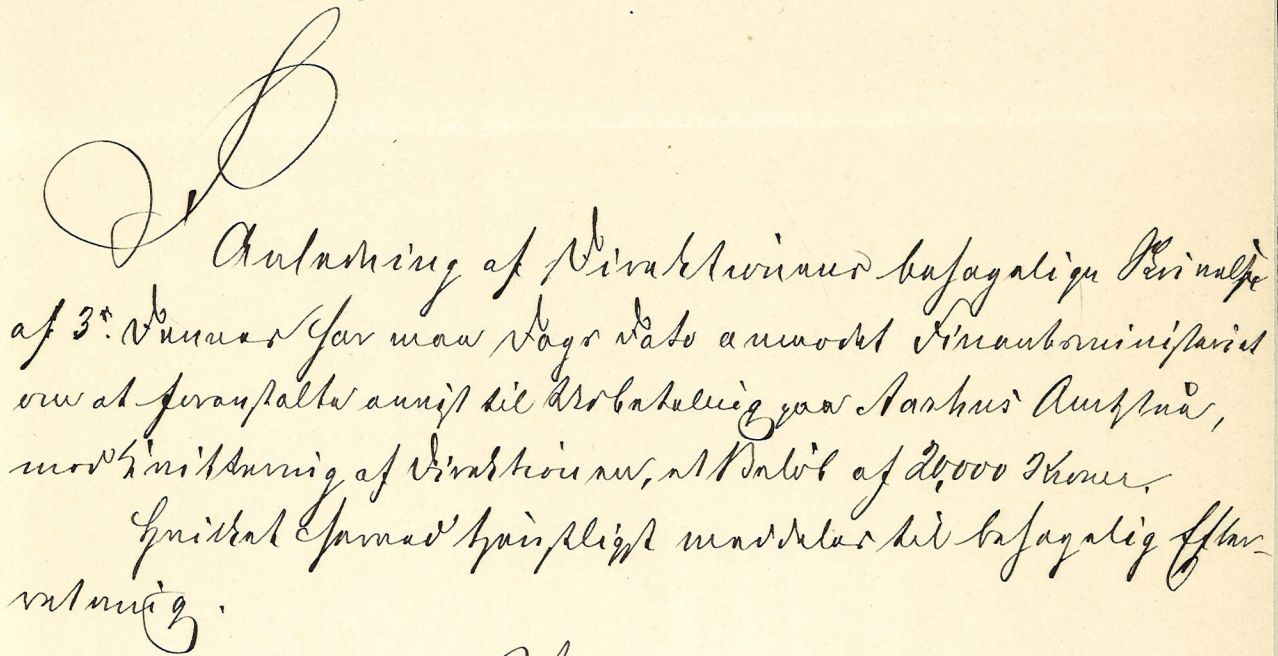 I
Anledning af Direktionens behagelige Skrivelse
af 3d. Dennes har man Dags Dato anmodet Finantsministeriet
om at foranstalte anvist til Udbetaling paa Aarhus Amtstue,
mod Kvittering af Direktionen, et Beløb af 20,000 Kroner.
Hvilket herved tjenstligst meddeles til behagelig Efter-
retning.